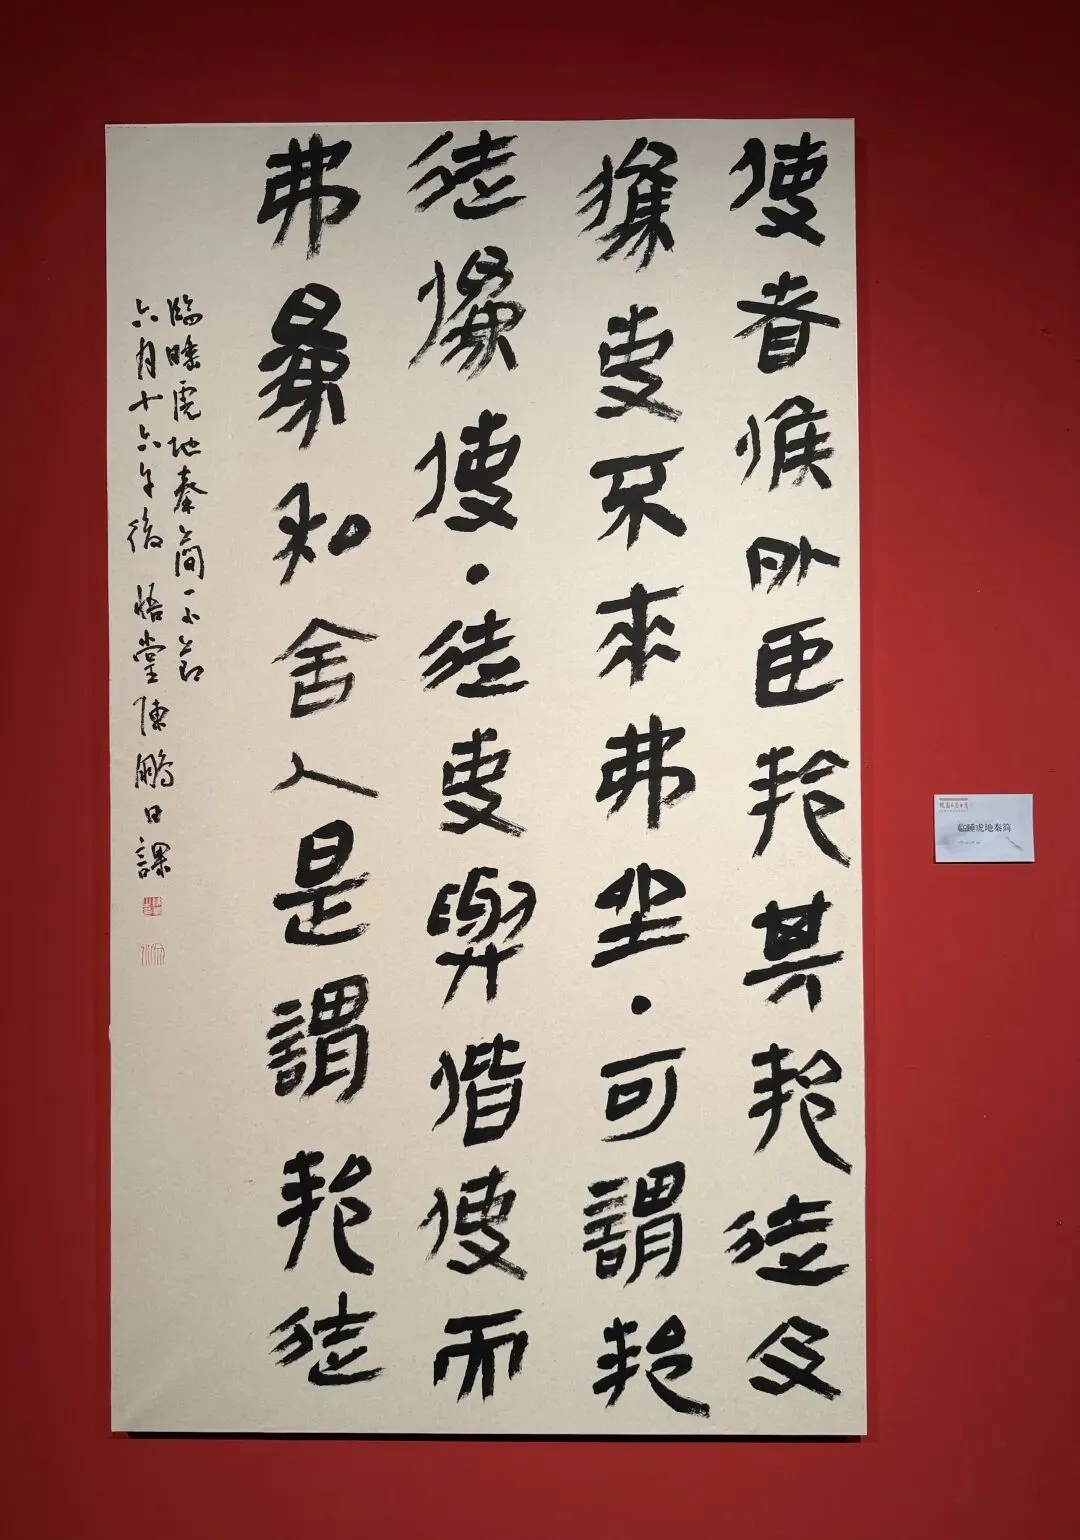 使者侯外臣邦其邦徒及
偽吏不來弗坐·可謂邦
徒偽使·徒吏與偕使而
弗為私舍人是謂邦徒
臨睡虎地秦簡一小節
六月十六午後 悟堂陳鵬日課
临睡虎地秦简